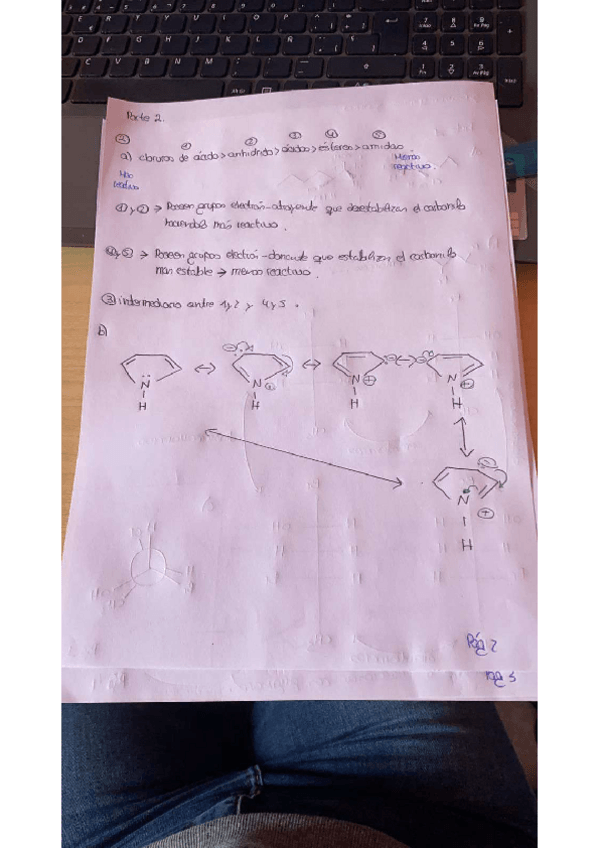 Parte 2.
2
① ② ③ ④ ⑤
a) cloruros de ácido > anhídrido > ácidos > ésteres > amidas
Más reactivo
Menos reactivo
① y ② → Poseen grupos electrón-atrayente que desestabilizan el carbonilo
haciendolo más reactivo.
④ y ⑤ → Poseen grupos electrón-donante que estabilizan el carbonilo
más estable → menos reactivo.
③ intermediario entre 1 y 2 y 4 y 5.
b)
N N ⊕ N ⊕ N ⊕
H H H H
N ⊕
H
Pág 2
Pág 3